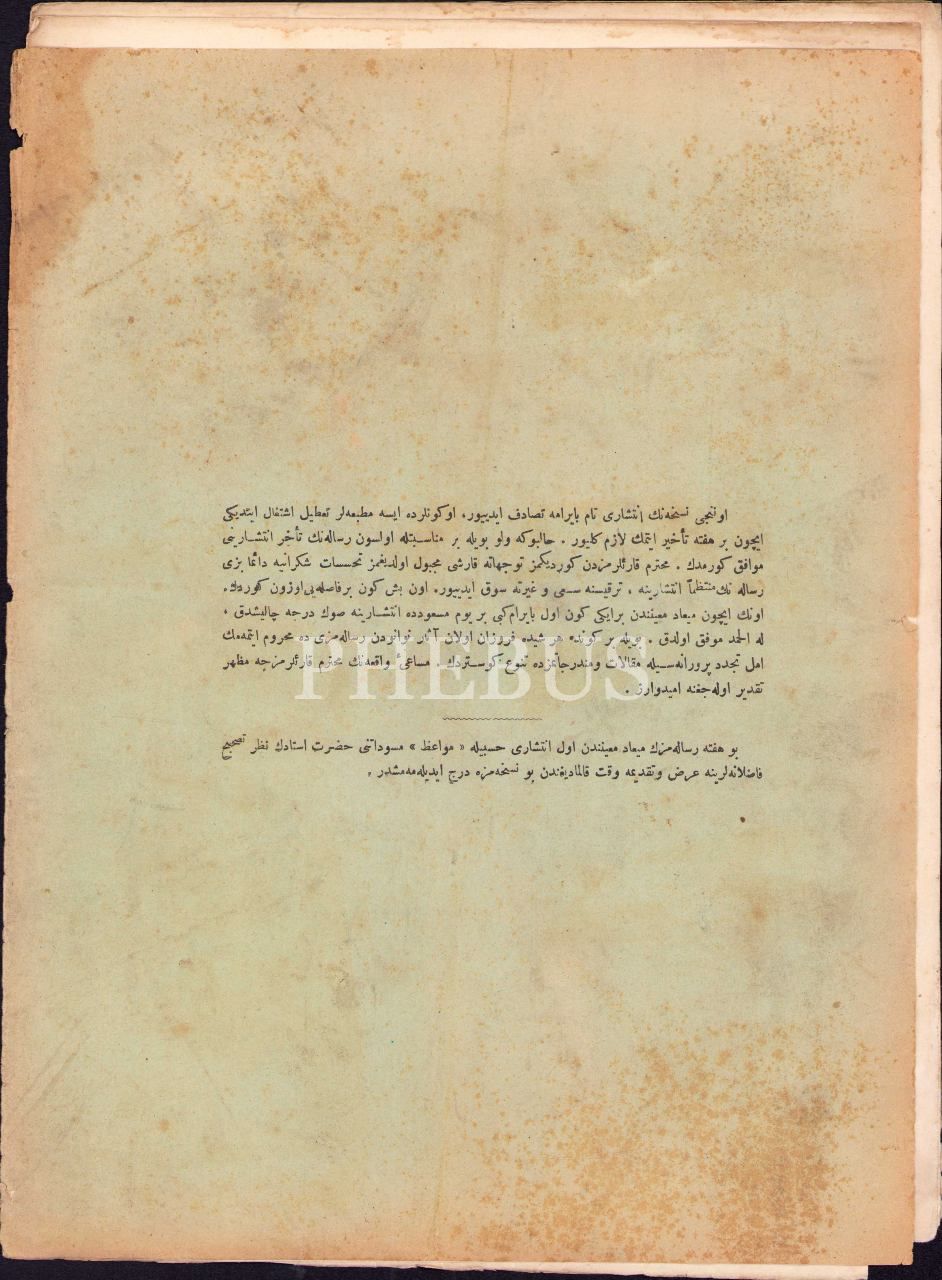 اوننجی نسخه‌نك انتشاری تام بایرامه تصادف ایدییور، اوكونلرده ایسه مطبعه‌لر تعطیل اشتغال ایتدیكی
ایچون بر هفته تأخیر ایتمك لازم كلیور . حالبوكه ولو بویله بر مناسبتله اولسون رساله‌نك تأخر انتشارینی
موافق كورمدك . محترم قارئلرمزدن كوردیكمز توجهاته قارشی مجبول اولدیغمز تحسسات شكرانیه دائما بزی
رساله نك منتظماً انتشارینه ، ترقیسنه سعی و غیرته سوق ایدییور. اون بش كون بر فاصله‌یی اوزون كوردك.
اونك ایچون میعاد معینندن برایكی كون اول بایرام كبی بر یوم مسعودده انتشارینه صوك درجه چالیشدق ،
له الحمد موفق اولدق . بویله بر كونده هر شیده فروزان اولان آثار نوانودن رساله‌مزی ده محروم ایتمه‌مك
امل تجدد پرورانه‌سیله مقالات ومندرجاتمزده تنوع كوستردك . مساعیٔ واقعه‌نك محترم قارئلرمزجه مظهر
تقدیر اوله‌جغنه امیدوارز .
بو هفته رساله‌مزك میعاد معینندن اول انتشاری حسبیله « مواعظ » مسوداتنی حضرت استادك نظر تصحیح
فاضلانه‌لرینه عرض وتقدیمه وقت قالمادیغندن بو نسخه‌مزه درج ایدیله‌مه‌مشدر .
PHEBUS